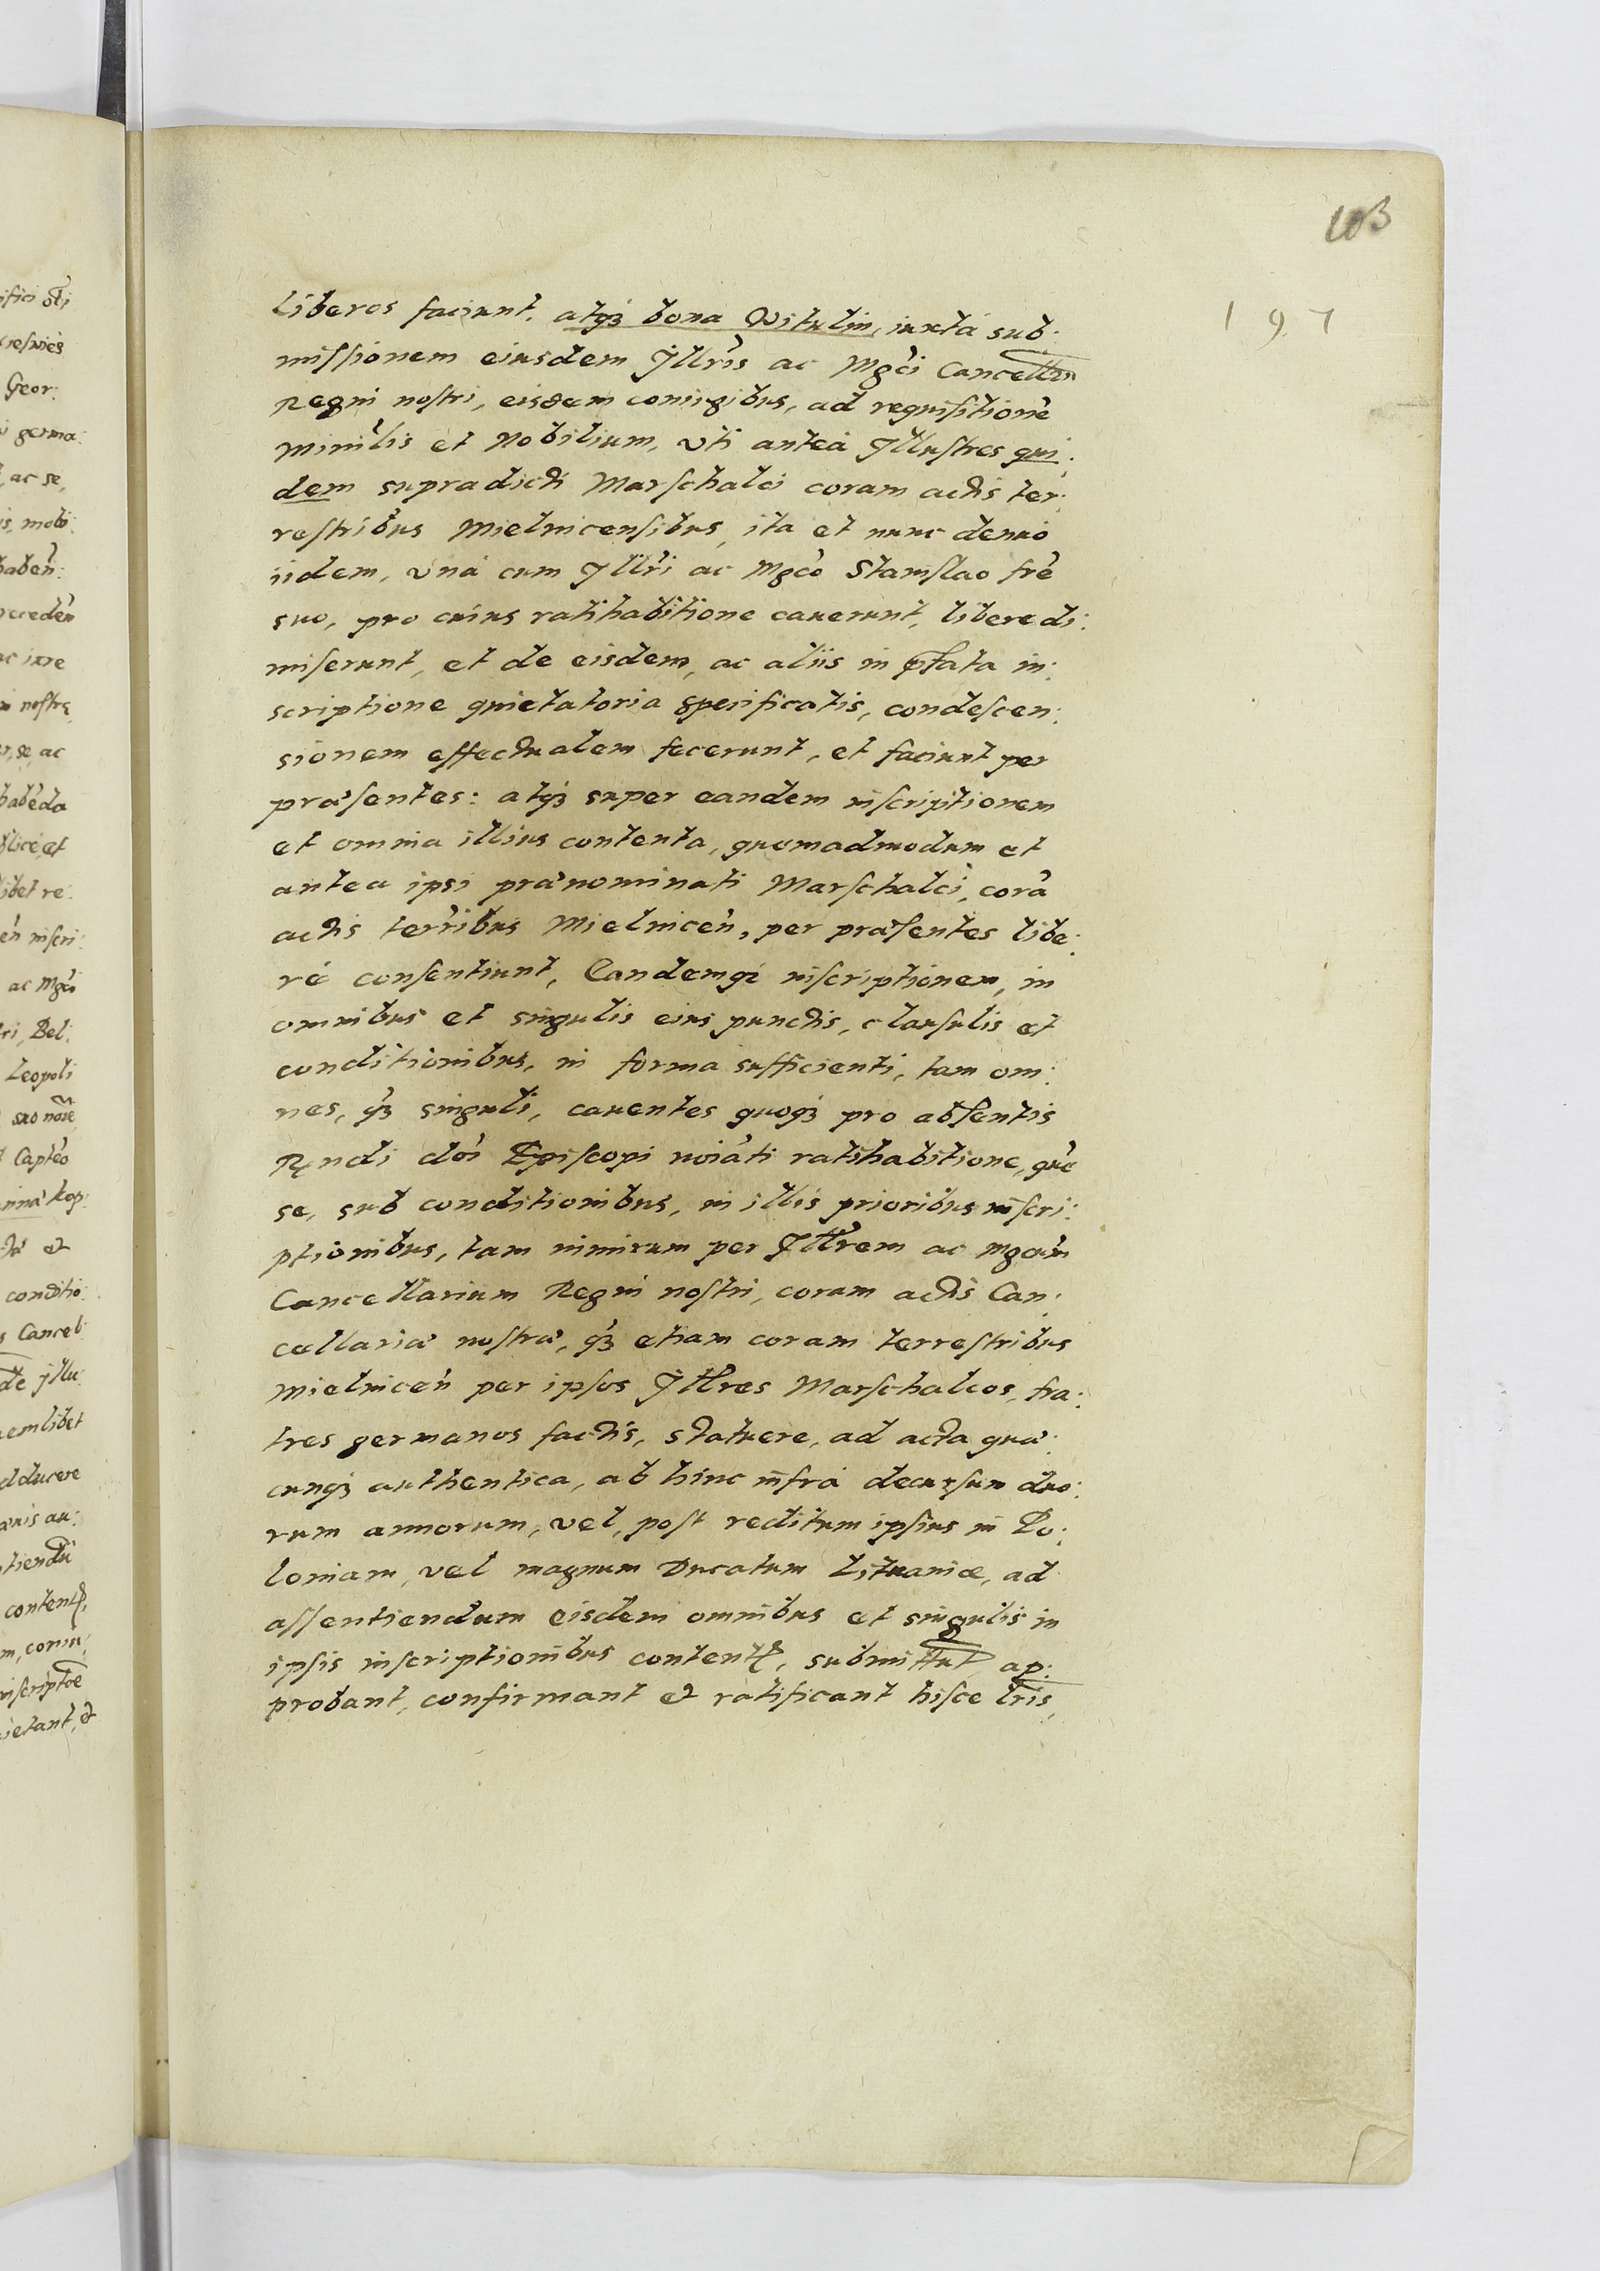 103
197
liberos faciunt. atq3 bona Witulin, iuxtà sub:
missionem eiusdem Jllris ac Mgci Cancellrii
Regni nostri, eisdem coniugibus, ad requisitionè
minilis et Nobilium, vti anteà Jllustres qui:
dem supradicti Marschalci coram actis ter:
restribus Mielnicensibus, ita et nunc denuò
iidem, vnà cum Jllri ac Mgco Stanislao fre
suo, pro cuius ratihabitione cauerunt, libere di:
miserunt, et de eisdem, ac aliis in pfata in:
scriptione quietatoria specificatis, condescen:
sionem effectualem fecerunt, et faciunt per
præsentes: atq3 super eandem inscriptionem
et omnia illius contenta, quemadmodum et
antea ipsi prænominati Marschalci, corà
actis terribus Mielnicen, per præsentes libe:
rè consentiunt, Eandemq3 inscriptionem, in
omnibus et singulis eius punctis, clausulis et
conditionibus, in forma sufficienti, tam om:
nes, q3 singuli, cauentes quoq3 pro absentis
Rndi dni Episcopi noiati ratihabitione, què
se, sub conditionibus, in illis prioribus inscri:
ptionibus, tam nimirum per Jllrem ac Mgcum
Cancellarium Regni nostri, coram actis Can:
cellariæ nostræ, q3 etiam coram terrestribus
Mielnicen per ipsos Jllres Marschalcos, fra:
tres germanos factis, statuere, ad acta quæ:
cunq3 authentica, ab hinc infrà decursum duo:
rum annorum, vel, post reditum ipsius in Po:
loniam, vel magnum Ducatum Lituaniæ, ad
assentiendum eisdem omnibus et singulis in
ipsis inscriptionibus content, submittut, ap:
probant, confirmant et ratificant hisce lris,